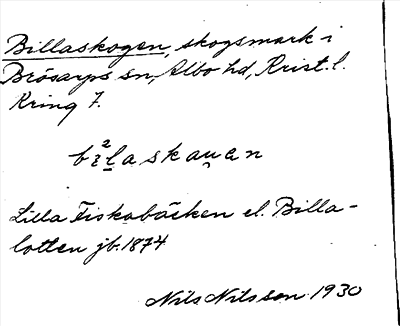 Billaskogen, skogsmark i
Brösarps sn, Albo hd, Krist. l.
Kring 7.
bi²laskau̯en
Lilla Fiskabäcken el. Billa-
lotten jb. 1874
Nils Nilsson 1930